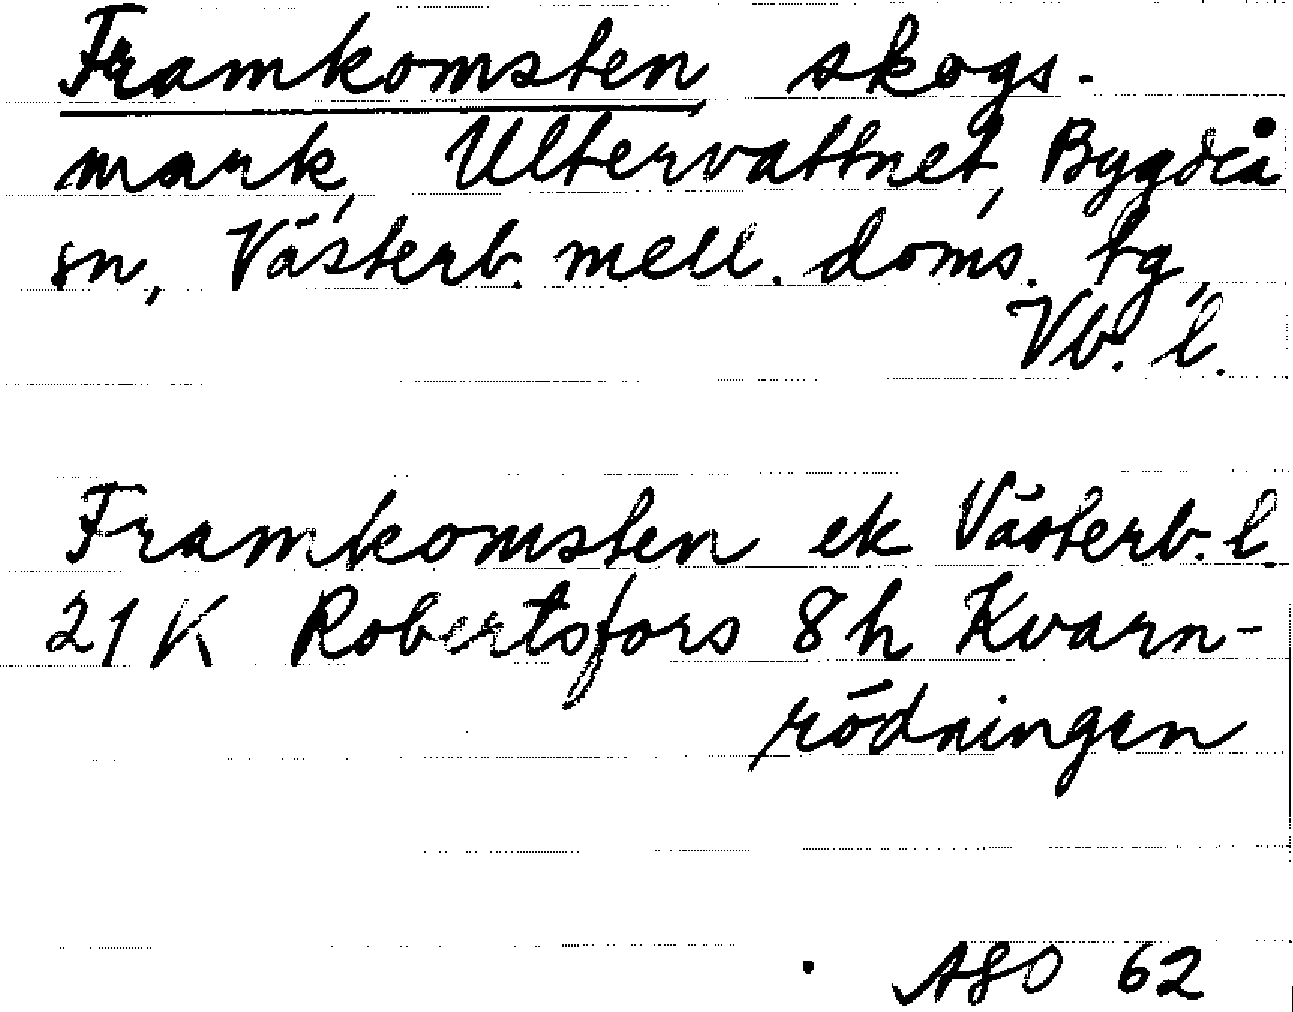 Framkomsten skogs-
mark, Ultervattnet, Bygdeå
sn, Västerb. mell. doms. tg,
Vb. l.
Framkomsten ek Västerb. l.
21 K Robertsfors 8 h Kvarn-
rödningen
ASO 62